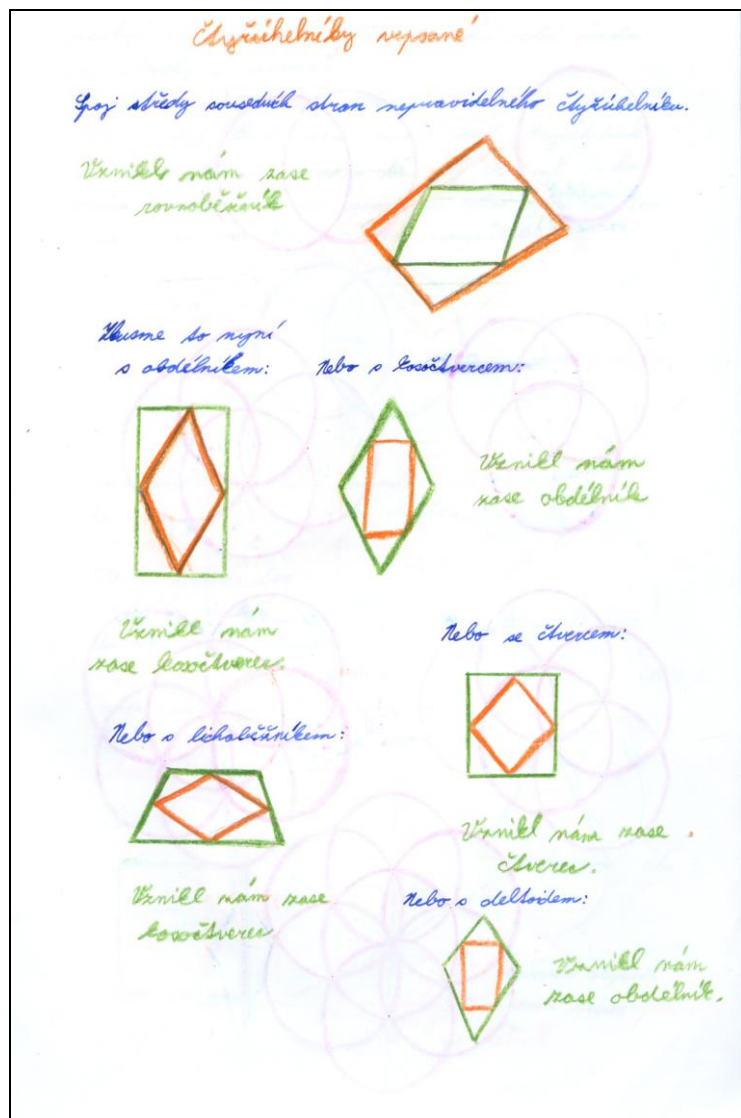 Čtyřúhelníky vepsané
Spoj středy sousedních stran nepravidelného čtyřúhelníku.
Vzniklo nám zase
rovnoběžník
Zkusme to nyní
s obdélníkem:
Nebo s kosočtvercem:
Vznikl nám
zase obdélník
Vznikl nám
zase kosočtverec.
Nebo se čtvercem:
Nebo s lichoběžníkem:
Vznikl nám zase
čtverec.
Vznikl nám zase
kosočtverec
Nebo s deltoidem:
Vznikl nám
zase obdélník.